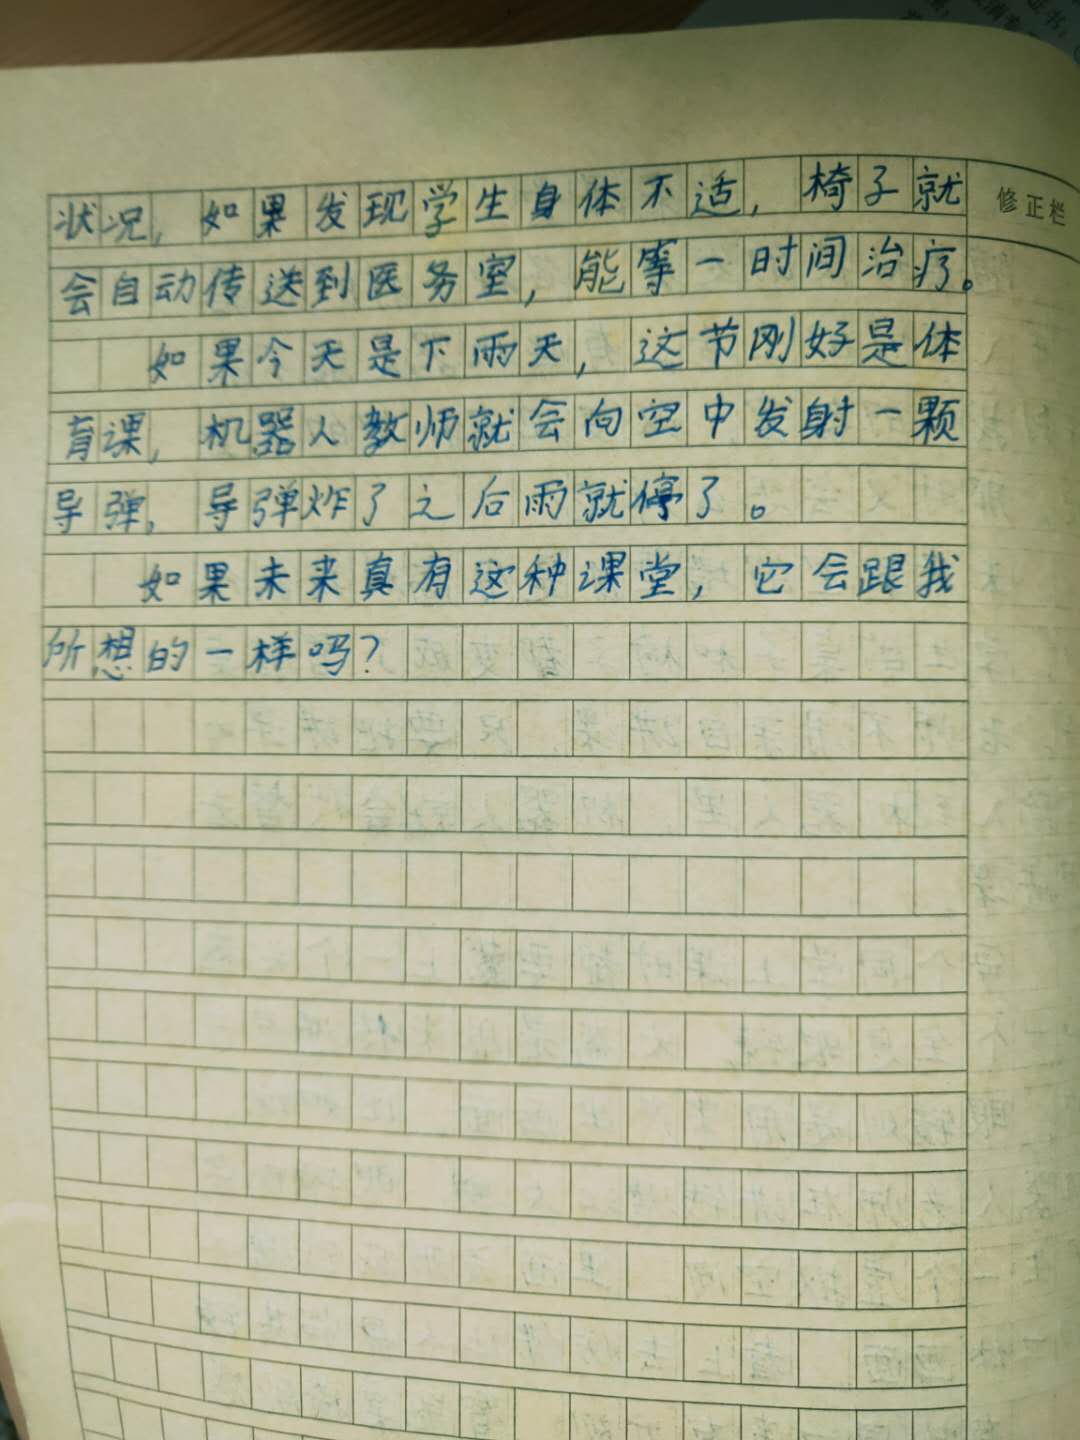 状况，如果发现学生身体不适，椅子就
会自动传送到医务室，能等一时间治疗。
如果今天是下雨天，这节刚好是体
育课，机器人教师就会向空中发射一颗
导弹，导弹炸了之后雨就停了。
如果未来真有这种课堂，它会跟我
所想的一样吗？
修正栏